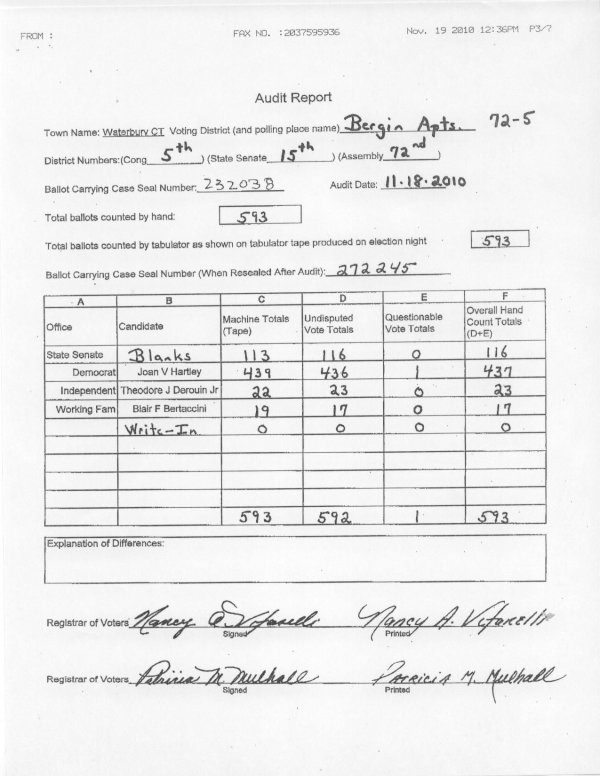 FROM : FAX NO. :2037595936 Nov. 19 2010 12:36PM P3/7
Audit Report
Town Name: Waterbury CT Voting District (and polling place name) Bergin Apts. 72-5
District Numbers:(Cong 5th ) (State Senate 15th ) (Assembly 72nd )
Ballot Carrying Case Seal Number: 232038 Audit Date: 11.18.2010
Total ballots counted by hand: 593
Total ballots counted by tabulator as shown on tabulator tape produced on election night 593
Ballot Carrying Case Seal Number (When Resealed After Audit): 272245
A B C D E F
Office Candidate Machine Totals (Tape) Undisputed Vote Totals Questionable Vote Totals Overall Hand Count Totals (D+E)
State Senate Blanks 113 116 0 116
Democrat Joan V Hartley 439 436 1 437
Independent Theodore J Derouin Jr 22 23 0 23
Working Fam Blair F Bertaccini 19 17 0 17
Write-In 0 0 0 0
593 592 1 593
Explanation of Differences:
Registrar of Voters Nancy A. Vitarelli Nancy A. Vitarelli
Signed Printed
Registrar of Voters Patricia M. Mulhall Patricia M. Mulhall
Signed Printed